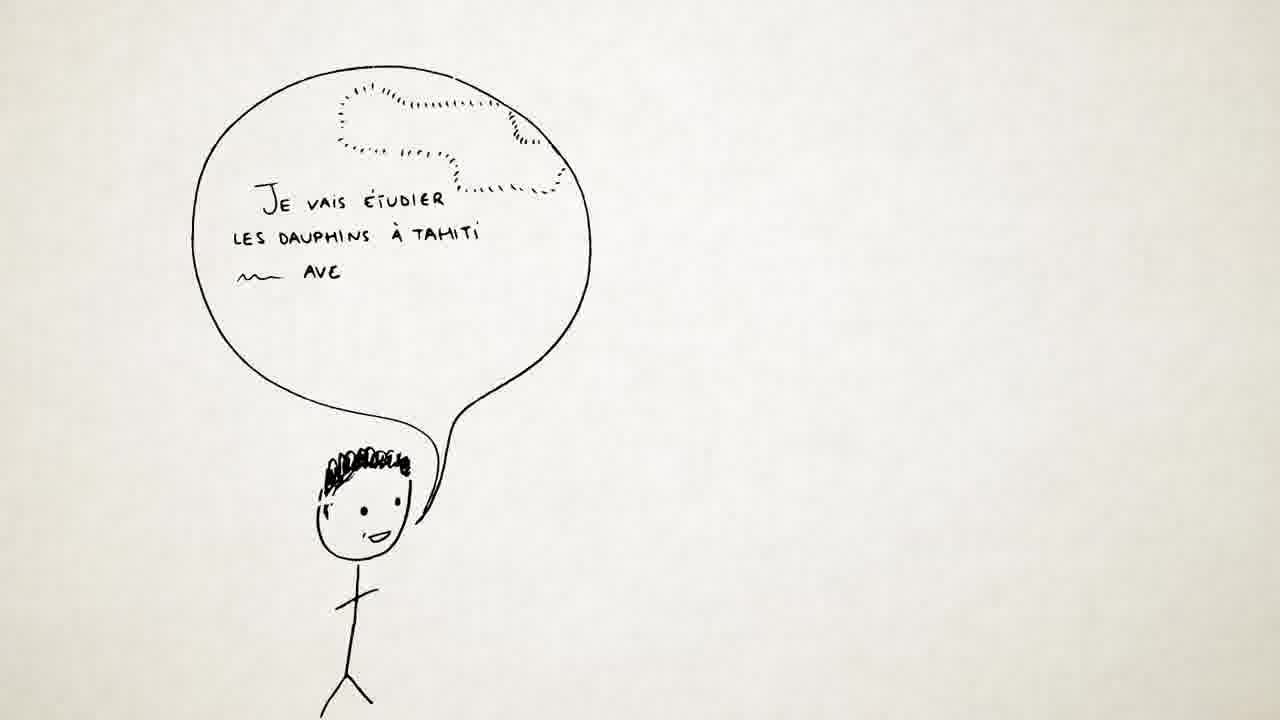 Je vais étudier
les dauphins à Tahiti
ave